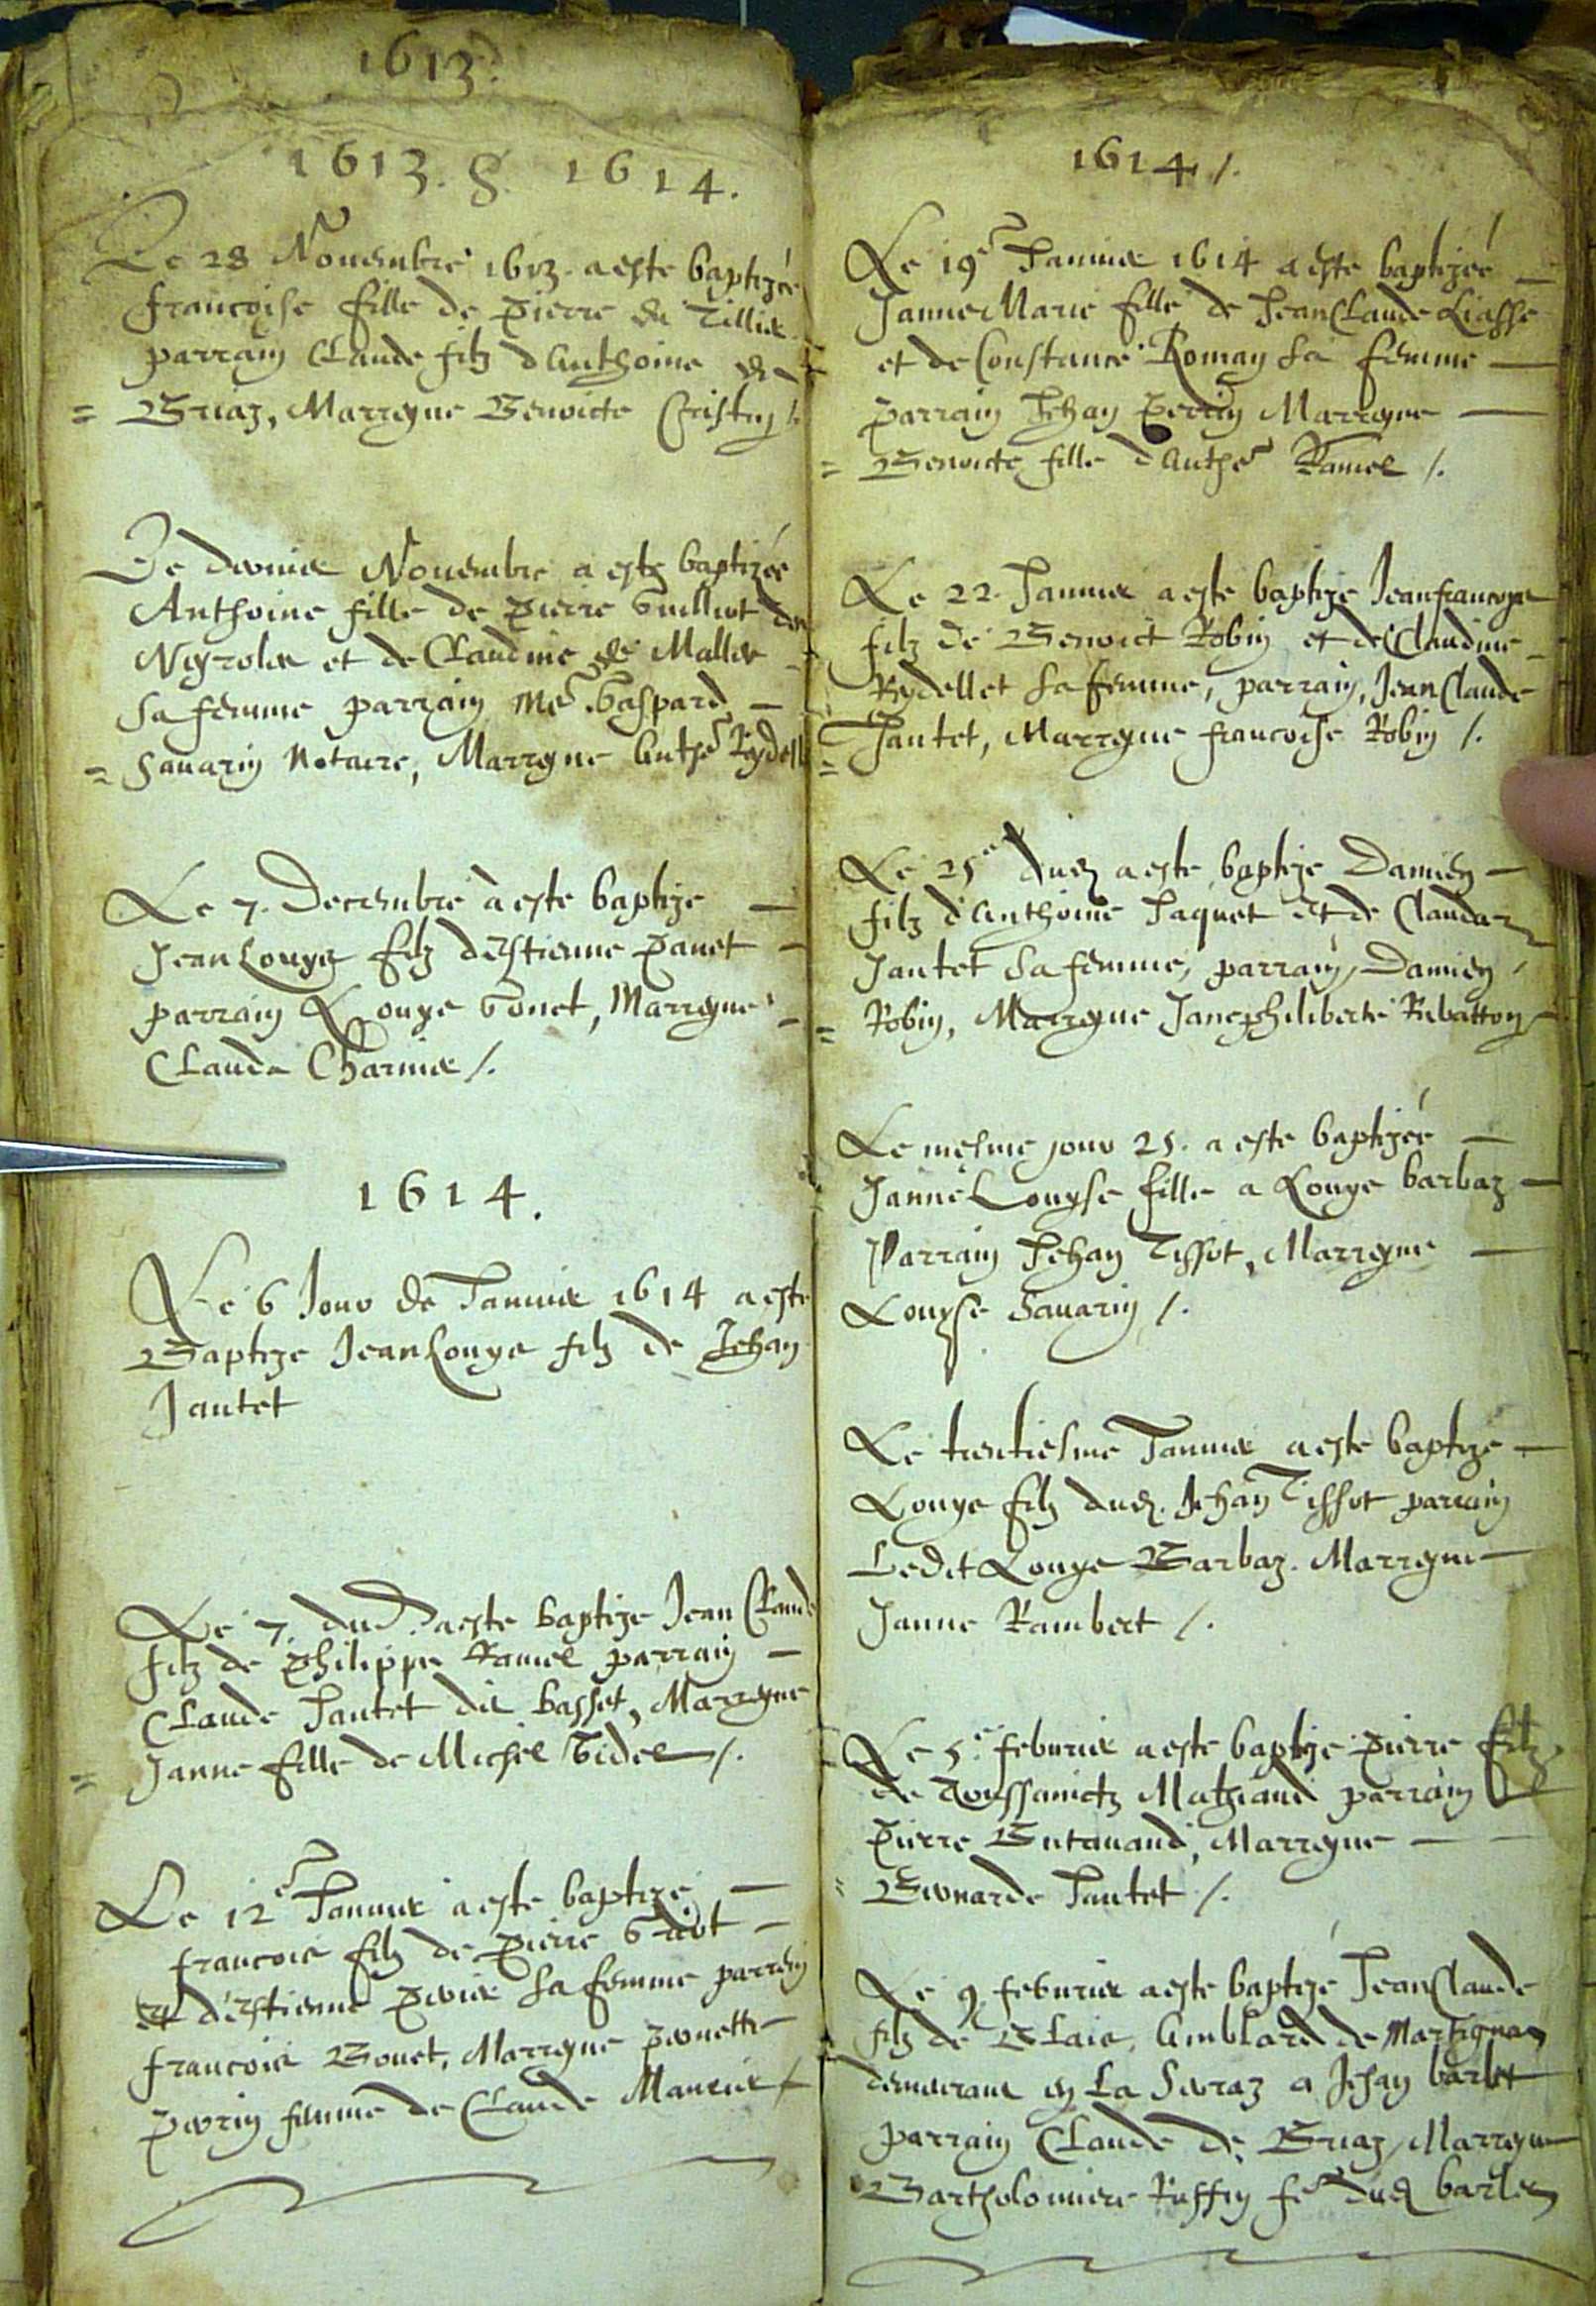 1613.
1613. & 1614.
Le 28 Nouembre 1613. a este baptizée
francoise fille de Pierre du Tillier
parrain Claude filz d'Anthoine de
Briaz, Marreyne Benoicte Cristin /.
Le dernier Nouembre a este baptizée
Anthoine fille de Pierre Guilliot des
Neyroles et de Claudine de Malliez
sa femme parrain Me Gaspard
Sauarin Notaire, Marreyne Anthe Reydellet
Le 7. Decembre a este baptize
Jean Louys filz d'Estienne Panet
parrain Louys Gonet, Marreyne
Clauda Charnier /.
1614.
Le 6 Jour de Januier 1614 a este
Baptize Jean Louys filz de Jehan
Jantet
Le 7. dud. a este baptize Jean Claude
filz de Philippe Ramel parrain
Claude Jantet dit basset, Marreyne
Janne fille de Michel Videl /.
Le 12e Januier a este baptize
francois filz de Pierre
et d'Estienne Perrier sa femme parrain
francois Bonet, Marreyne Pernette
Perrin femme de Claude Manier /
1614 /.
Le 19e Januier 1614 a este baptizée
Janne Marie fille de Jean Claude Liasse
et de Constance Roman sa femme
parrain Jehan Perrin Marreyne
Benoicte fille d'Anthe Ramel /.
Le 22. Januier a este baptize Jean francoys
filz de Benoict Robin et de Claudine
Reydellet sa femme, parrain, Jean Claude
Jantet, Marreyne francoise Robin /.
Le 25e dud. a este baptize Damien
filz d'Anthoine Jaquet et de Clauda
Jantet sa femme, parrain, Damien
Robin, Marreyne Janephiliberte Rubatton
Le mesme jour 25. a este baptizée
Janne Louyse fille a Louys barbaz
Parrain Jehan Tissot, Marreyne
Louyse Sauarin /.
Le trentiesme Januier a este baptizé
Louys filz dud. Jehan Tissot parrain
Ledit Louys Barbaz. Marreyne
Janne Rambert /.
Le 5e feburier a este baptize Pierre filz
de Toussainctz Mathiaud parrain
Pierre Butauand, Marreyne
Bernarde Jantet /.
Le 9 feburier a este baptizé Jean Claude
filz de Blaise Amblard de Martignaz
demeurant en La Serraz a Jehan barlet
parrain Claude de Briaz, Marreyne
Bartholomiere Ruffin fe dud. barlet